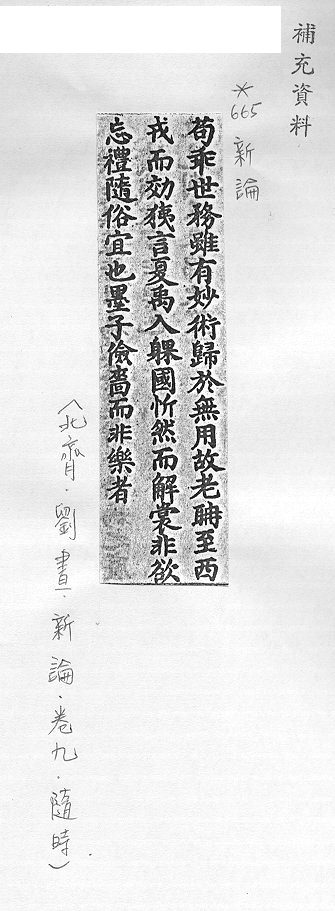 補充資料
*665 新論
苟乖世務雖有妙術歸於無用故老聃至西
戎而効夷言夏禹入躶國忻然而解裳非欲
忘禮隨俗宜也墨子儉嗇而非樂者
(北齊.劉晝.新論.卷九.隨時)